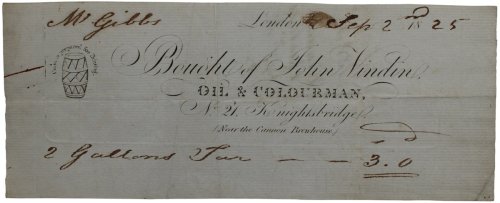 Mr Gibbs
London Sep 2nd 1825
Bought of John Vindin,
OIL & COLOURMAN,
No. 21, Knightsbridge,
(Near the Cannon Brewhouse.)
2 Gallons Tar — — 3.0